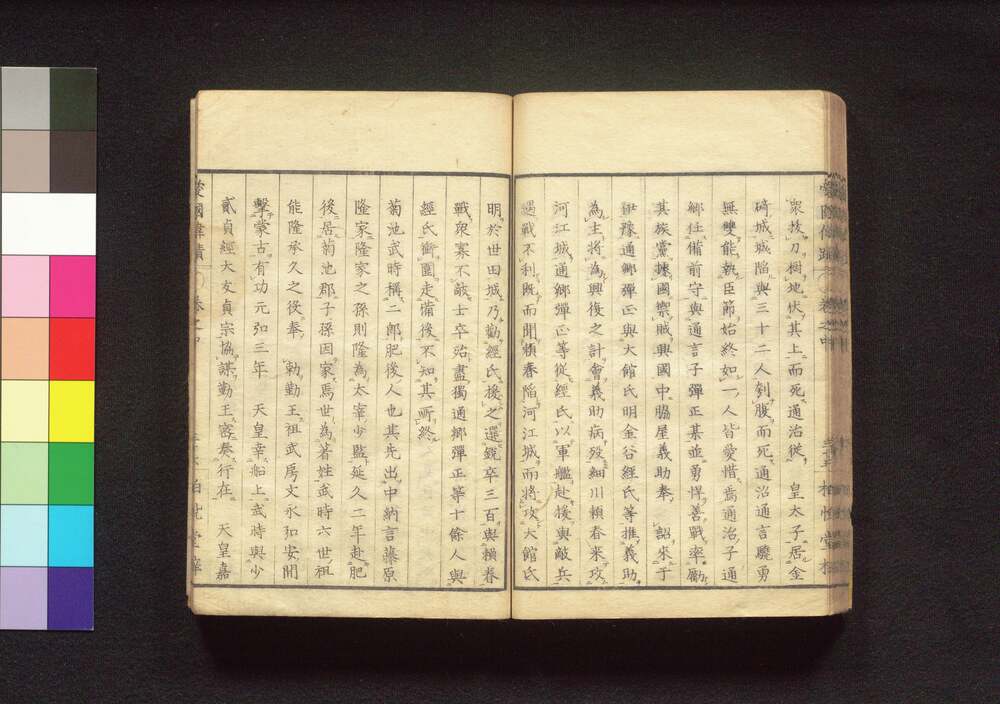 衆拔刀樹地伏其上而死通治從　皇太子居金
碕城城陷與三十二人刳腹而死通治通言驍勇
無雙能執臣節始終如一人皆愛惜焉通治子通
鄉任備前守與通言子彈正某並勇悍善戰率勵
其族黨據國禦賊興國中脇屋義助奉　詔來于
伊豫通鄉彈正與大館氏明金谷經氏等推義助
為主將為興復之計會義助病歿細川賴春來攻
河江城通鄉彈正等從經氏以軍艦赴援與敵兵
遇戰不利既而聞賴春陷河江城而將攻大館氏
明於世田城乃勸經氏援之選銳卒三百與賴春
戰衆寡不敵士卒殆盡獨通鄉彈正等十餘人與
經氏衝圍走備後不知其所終
菊池武時稱二郎肥後人也其先出中納言藤原
隆家隆家之孫則隆為太宰少監延久二年赴肥
後居菊池郡子孫因家焉世為著姓武時六世祖
能隆承久之役奉　勅勤王祖武房文永弘安間
擊蒙古有功元弘三年　天皇幸船上武時與少
貳貞經大友貞宗協謀勤王密奏行在　天皇嘉
卷之中